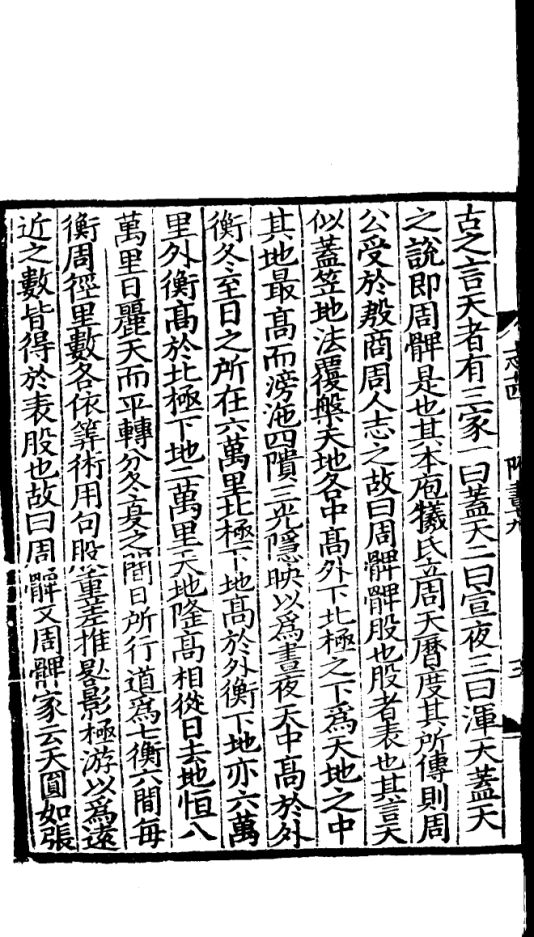 志四 隋書九
古之言天者有三家一曰蓋天二曰宣夜三曰渾天蓋天
之說即周髀是也其本庖犧氏立周天曆度其所傳則周
公受於殷商周人志之故曰周髀髀股也股者表也其言天
似蓋笠地法覆槃天地各中髙外下北極之下爲天地之中
其地最髙而滂沲四隤三光隱映以爲晝夜天中髙於外
衡冬至日之所在六萬里北極下地髙於外衡下地亦六萬
里外衡髙於北極下地二萬里天地隆髙相從日去地恒八
萬里日麗天而平轉分冬夏之間日所行道爲七衡六間每
衡周徑里數各依筭術用句股重差推晷影極游以爲遠
近之數皆得於表股也故曰周髀又周髀家云天圓如張